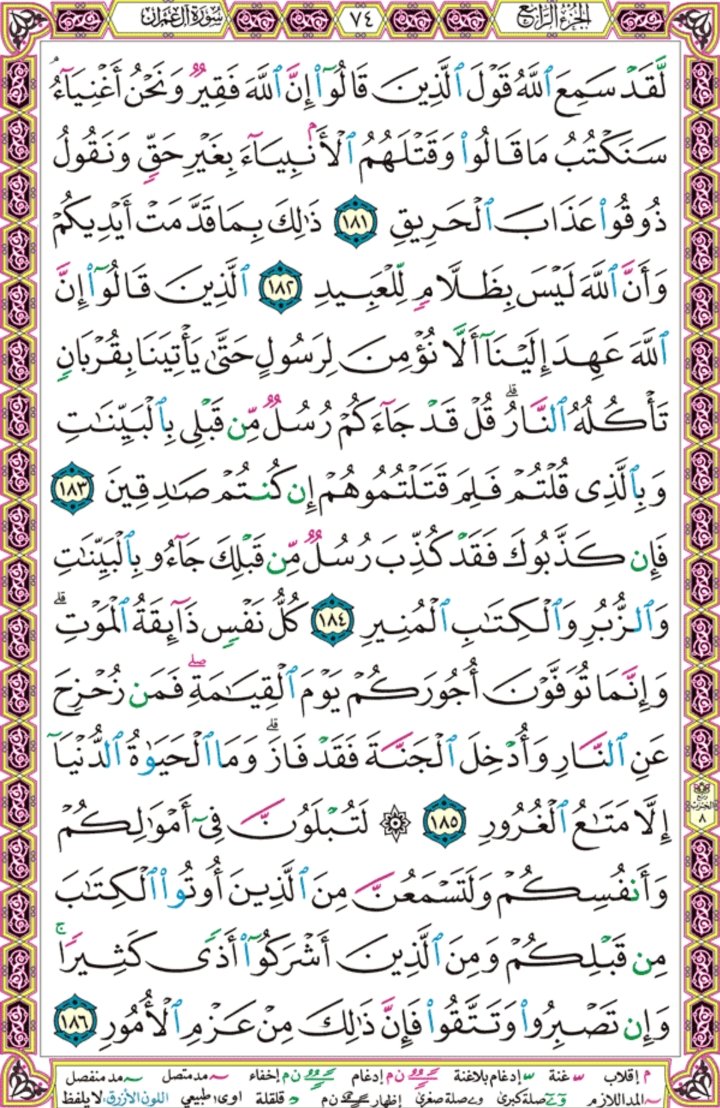 الجزء الرابع ٧٤ سورة آل عمران
لَّقَدْ سَمِعَ ٱللَّهُ قَوْلَ ٱلَّذِينَ قَالُوٓا۟ إِنَّ ٱللَّهَ فَقِيرٌ وَنَحْنُ أَغْنِيَآءُ
سَنَكْتُبُ مَا قَالُوا۟ وَقَتْلَهُمُ ٱلْأَنۢبِيَآءَ بِغَيْرِ حَقٍّ وَنَقُولُ
ذُوقُوا۟ عَذَابَ ٱلْحَرِيقِ ١٨١ ذَٰلِكَ بِمَا قَدَّمَتْ أَيْدِيكُمْ
وَأَنَّ ٱللَّهَ لَيْسَ بِظَلَّامٍ لِّلْعَبِيدِ ١٨٢ ٱلَّذِينَ قَالُوٓا۟ إِنَّ
ٱللَّهَ عَهِدَ إِلَيْنَآ أَلَّا نُؤْمِنَ لِرَسُولٍ حَتَّىٰ يَأْتِيَنَا بِقُرْبَانٍ
تَأْكُلُهُ ٱلنَّارُ ۗ قُلْ قَدْ جَآءَكُمْ رُسُلٌ مِّن قَبْلِى بِٱلْبَيِّنَٰتِ
وَبِٱلَّذِى قُلْتُمْ فَلِمَ قَتَلْتُمُوهُمْ إِن كُنتُمْ صَٰدِقِينَ ١٨٣
فَإِن كَذَّبُوكَ فَقَدْ كُذِّبَ رُسُلٌ مِّن قَبْلِكَ جَآءُو بِٱلْبَيِّنَٰتِ
وَٱلزُّبُرِ وَٱلْكِتَٰبِ ٱلْمُنِيرِ ١٨٤ كُلُّ نَفْسٍ ذَآئِقَةُ ٱلْمَوْتِ ۗ
وَإِنَّمَا تُوَفَّوْنَ أُجُورَكُمْ يَوْمَ ٱلْقِيَٰمَةِ ۖ فَمَن زُحْزِحَ
عَنِ ٱلنَّارِ وَأُدْخِلَ ٱلْجَنَّةَ فَقَدْ فَازَ ۗ وَمَا ٱلْحَيَوٰةُ ٱلدُّنْيَآ
إِلَّا مَتَٰعُ ٱلْغُرُورِ ١٨٥ ۞ لَتُبْلَوُنَّ فِىٓ أَمْوَٰلِكُمْ
وَأَنفُسِكُمْ وَلَتَسْمَعُنَّ مِنَ ٱلَّذِينَ أُوتُوا۟ ٱلْكِتَٰبَ
مِن قَبْلِكُمْ وَمِنَ ٱلَّذِينَ أَشْرَكُوٓا۟ أَذًى كَثِيرًا ۚ
وَإِن تَصْبِرُوا۟ وَتَتَّقُوا۟ فَإِنَّ ذَٰلِكَ مِنْ عَزْمِ ٱلْأُمُورِ ١٨٦
ربع الحزب ٨
م إقلاب غنة إدغام بلاغنة ن م إدغام ن م إخفاء مد متصل مد منفصل
المد اللازم صلة كبرى صلة صغرى إظهار ن م قلقلة اوى طبيعي اللون الأزرق: لا يلفظ